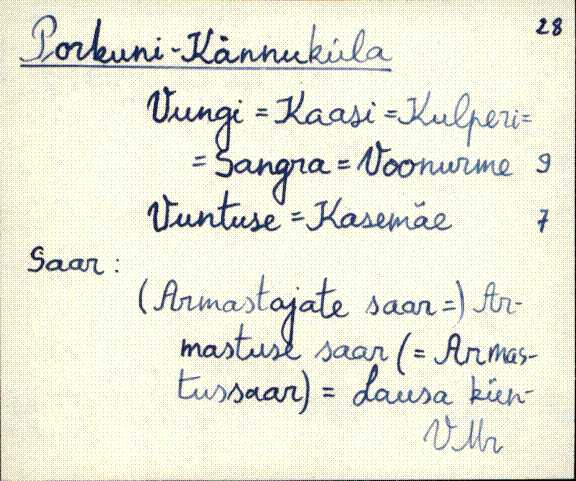 28
Porkuni-Kännuküla
Vungi = Kaasi = Kulperi =
= Sangra = Voonurme 9
Vuntuse = Kasemäe 7
Saar :
(Armastajate saar =) Ar-
mastuse saar (= Armas-
tussaar) = Lausa kün-
VMr